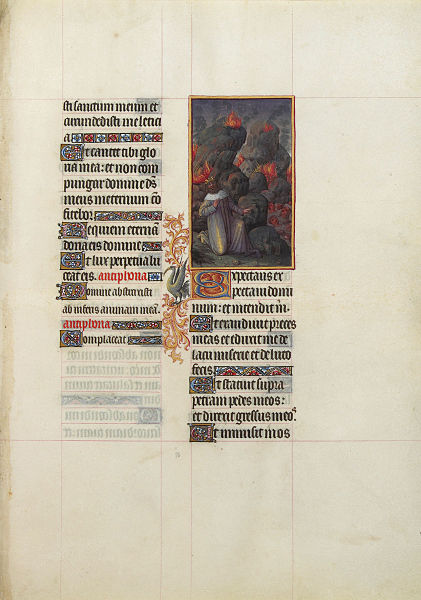 sti sanctum meum et
circundedisti me letici
a
Ut cantet tibi glo
ria mea: et non com
pungar domine ds̄
meus in eternum cō
fitebor
Requiem eternā
dona eis domine
Et lux perpetua lu
ceat eis. antiphona
Domine abstraxisti
ab inferis animam meā.
antiphona
Complaceat
Expectans ex
pectaui domi
num: et intendit m̄.
Et exaudiuit preces
meas et eduxit me de
lacu miserie et de luto
fecis
Et statuit supra
petram pedes meos:
et direxit gressus meoꝰ
Et immisit in os